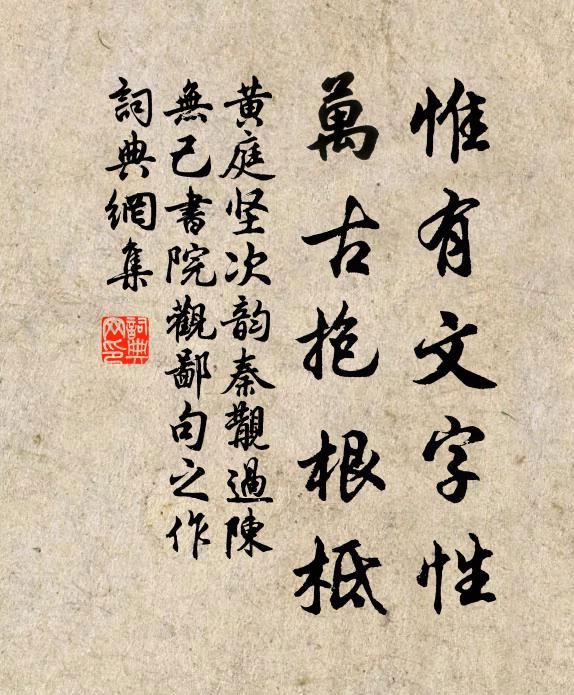 惟有文字性
萬古抱根柢
黃庭坚次韵秦觀過陳
無己書院觀鄙句之作
詞典網集
詞典
网印